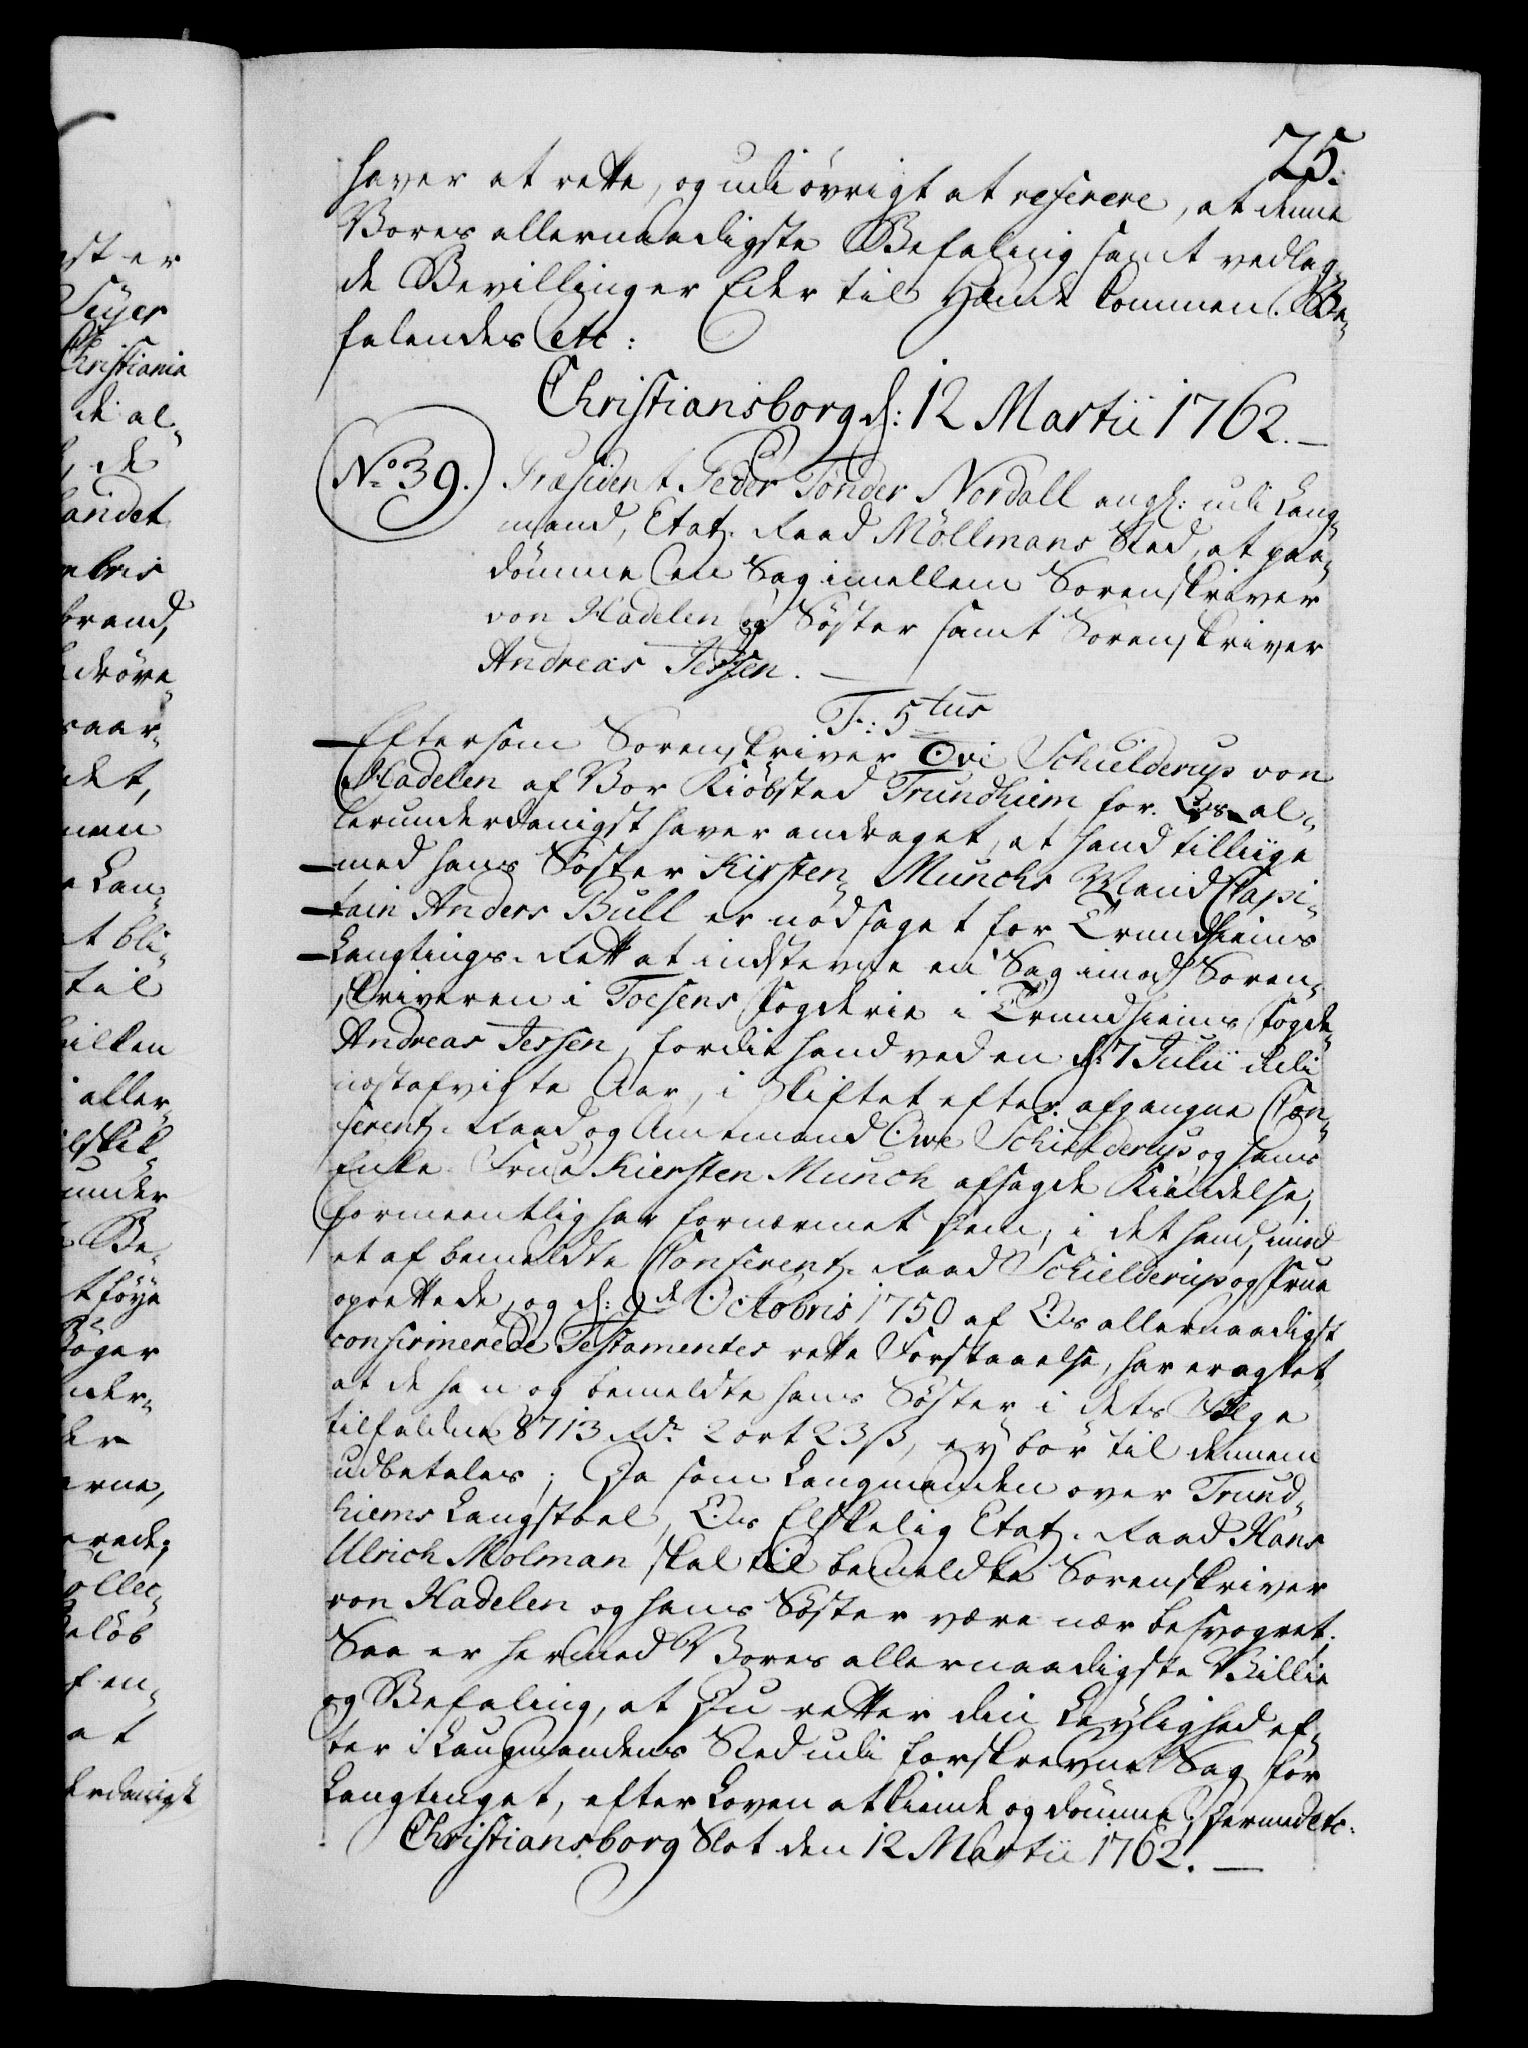 25.
haver at rette, og udi övrigt at referere, at denne
Vores allernaadigste Befaling samt vedlag-
de Bevillinger Eder til Hænde kommen. Be-
falendes etc:
Christiansborg d: 12 Martii 1762.
No 39. Præsident Peder Tönder Nordall angl: udi Laug-
mand, Etatz-Raad Möllmans Sted, at paa-
dömme en Sag imellem Sorenskriver
von Hadelen og Söster samt Sorenskriver
Andreas Jessen.
F: 5tus
Eftersom Sorenskriver Ove Schielderup von
Hadelen af Vor Kiöbsted Trundhiem for Os al-
lerunderdanigst haver andraget, at hand tilliige
med hans Söster Kirsten Munchs Mand Capi-
tain Anders Bull er nödsaget for Trundhiems
Laugtings-Rett at indstevne en Sag imod Soren-
skriveren i Foesens Fogderie i Trundhiems Fogde-
Andreas Jessen, fordie hand ved en d: 7 Julii udi
nestafvigte Aar, i Skiftet efter afgangne Con-
ferentz-Raad og Amtmand Ove Schielderup, og hans
Enke Frue Kiersten Munch afsagde Kiendelse,
formeentlig har fornærmet dem, i det hand, imod
et af bemeldte Conferentz-Raad Schielderup og Frue
oprettede, og d: 9de Octobris 1750 af Os allernaadigst
confirmerede Testamentes rette Forstaaelse, har eragtet,
at de ham og bemeldte hans Söster i dets Fölge
tilfaldne 8713 Rdr 2 ort 23 ß, ey bör til dennem
udbetales; Da som Laugmanden over Trund-
hiems Laugstoel, Os Elskelig Etatz-Raad Hans
Ulrich Molman skal til bemeldte Sorenskriver
von Hadelen og hans Söster være nær besvogret;
Saa er hermed Vores allernaadigste Villie
og Befaling, at Du retter din Leylighed ef-
ter i Laugmandens Sted udi forskrevne Sag for
Laugtinget, efter Loven at kiende og dömme; Dermed etc.
Christiansborg Slot den 12 Martii 1762.